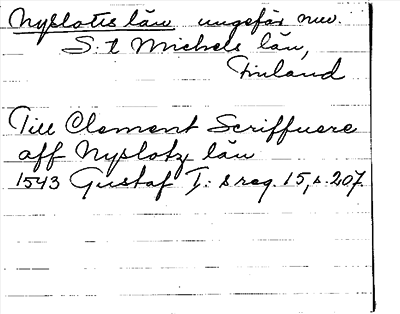 Nyslotts län ungefär nuv.
S:t Michels län,
Finland
Till Clement Scriffuere
aff Nyslotz län
1543 Gustaf I: s reg. 15, s. 207.